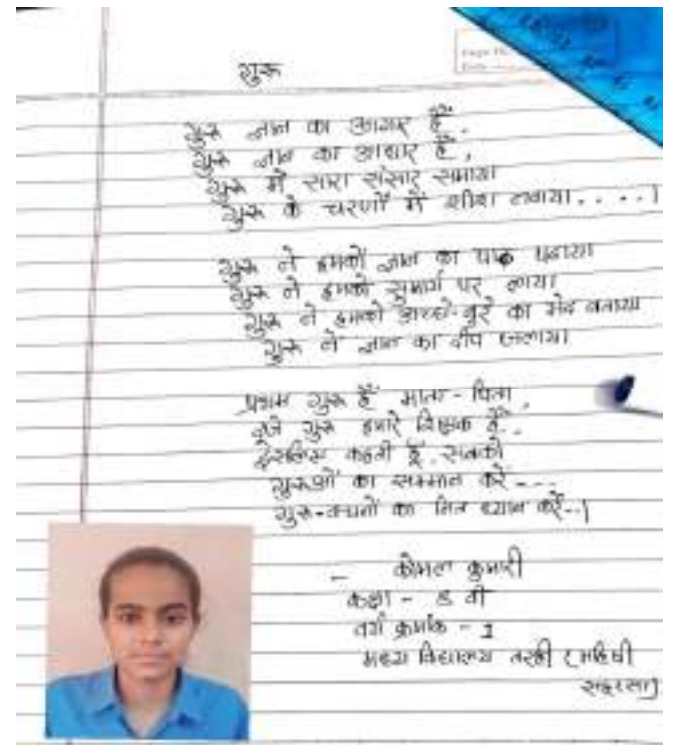 गुरू
गुरू ज्ञान का आगार हैं,
गुरू ज्ञान का आधार हैं,
गुरू में सारा संसार समाया
गुरू के चरणों में शीश नवाया....।
गुरू ने हमको ज्ञान का पाठ पढ़ाया
गुरू ने हमको सुमार्ग पर लाया
गुरू ने हमको अच्छे-बुरे का भेद बताया
गुरू ने ज्ञान का दीप जलाया
प्रथम गुरू हैं माता-पिता,
दूजे गुरू हमारे शिक्षक हैं..
इसलिए कहती हूँ, सबको
गुरूओं का सम्मान करें---
गुरू-वचनों का नित ध्यान करें..।
- कोमल कुमारी
कक्षा - 8 वी
वर्ग क्रमांक - 1
मध्य विद्यालय तरही (महिषी
सहरसा)